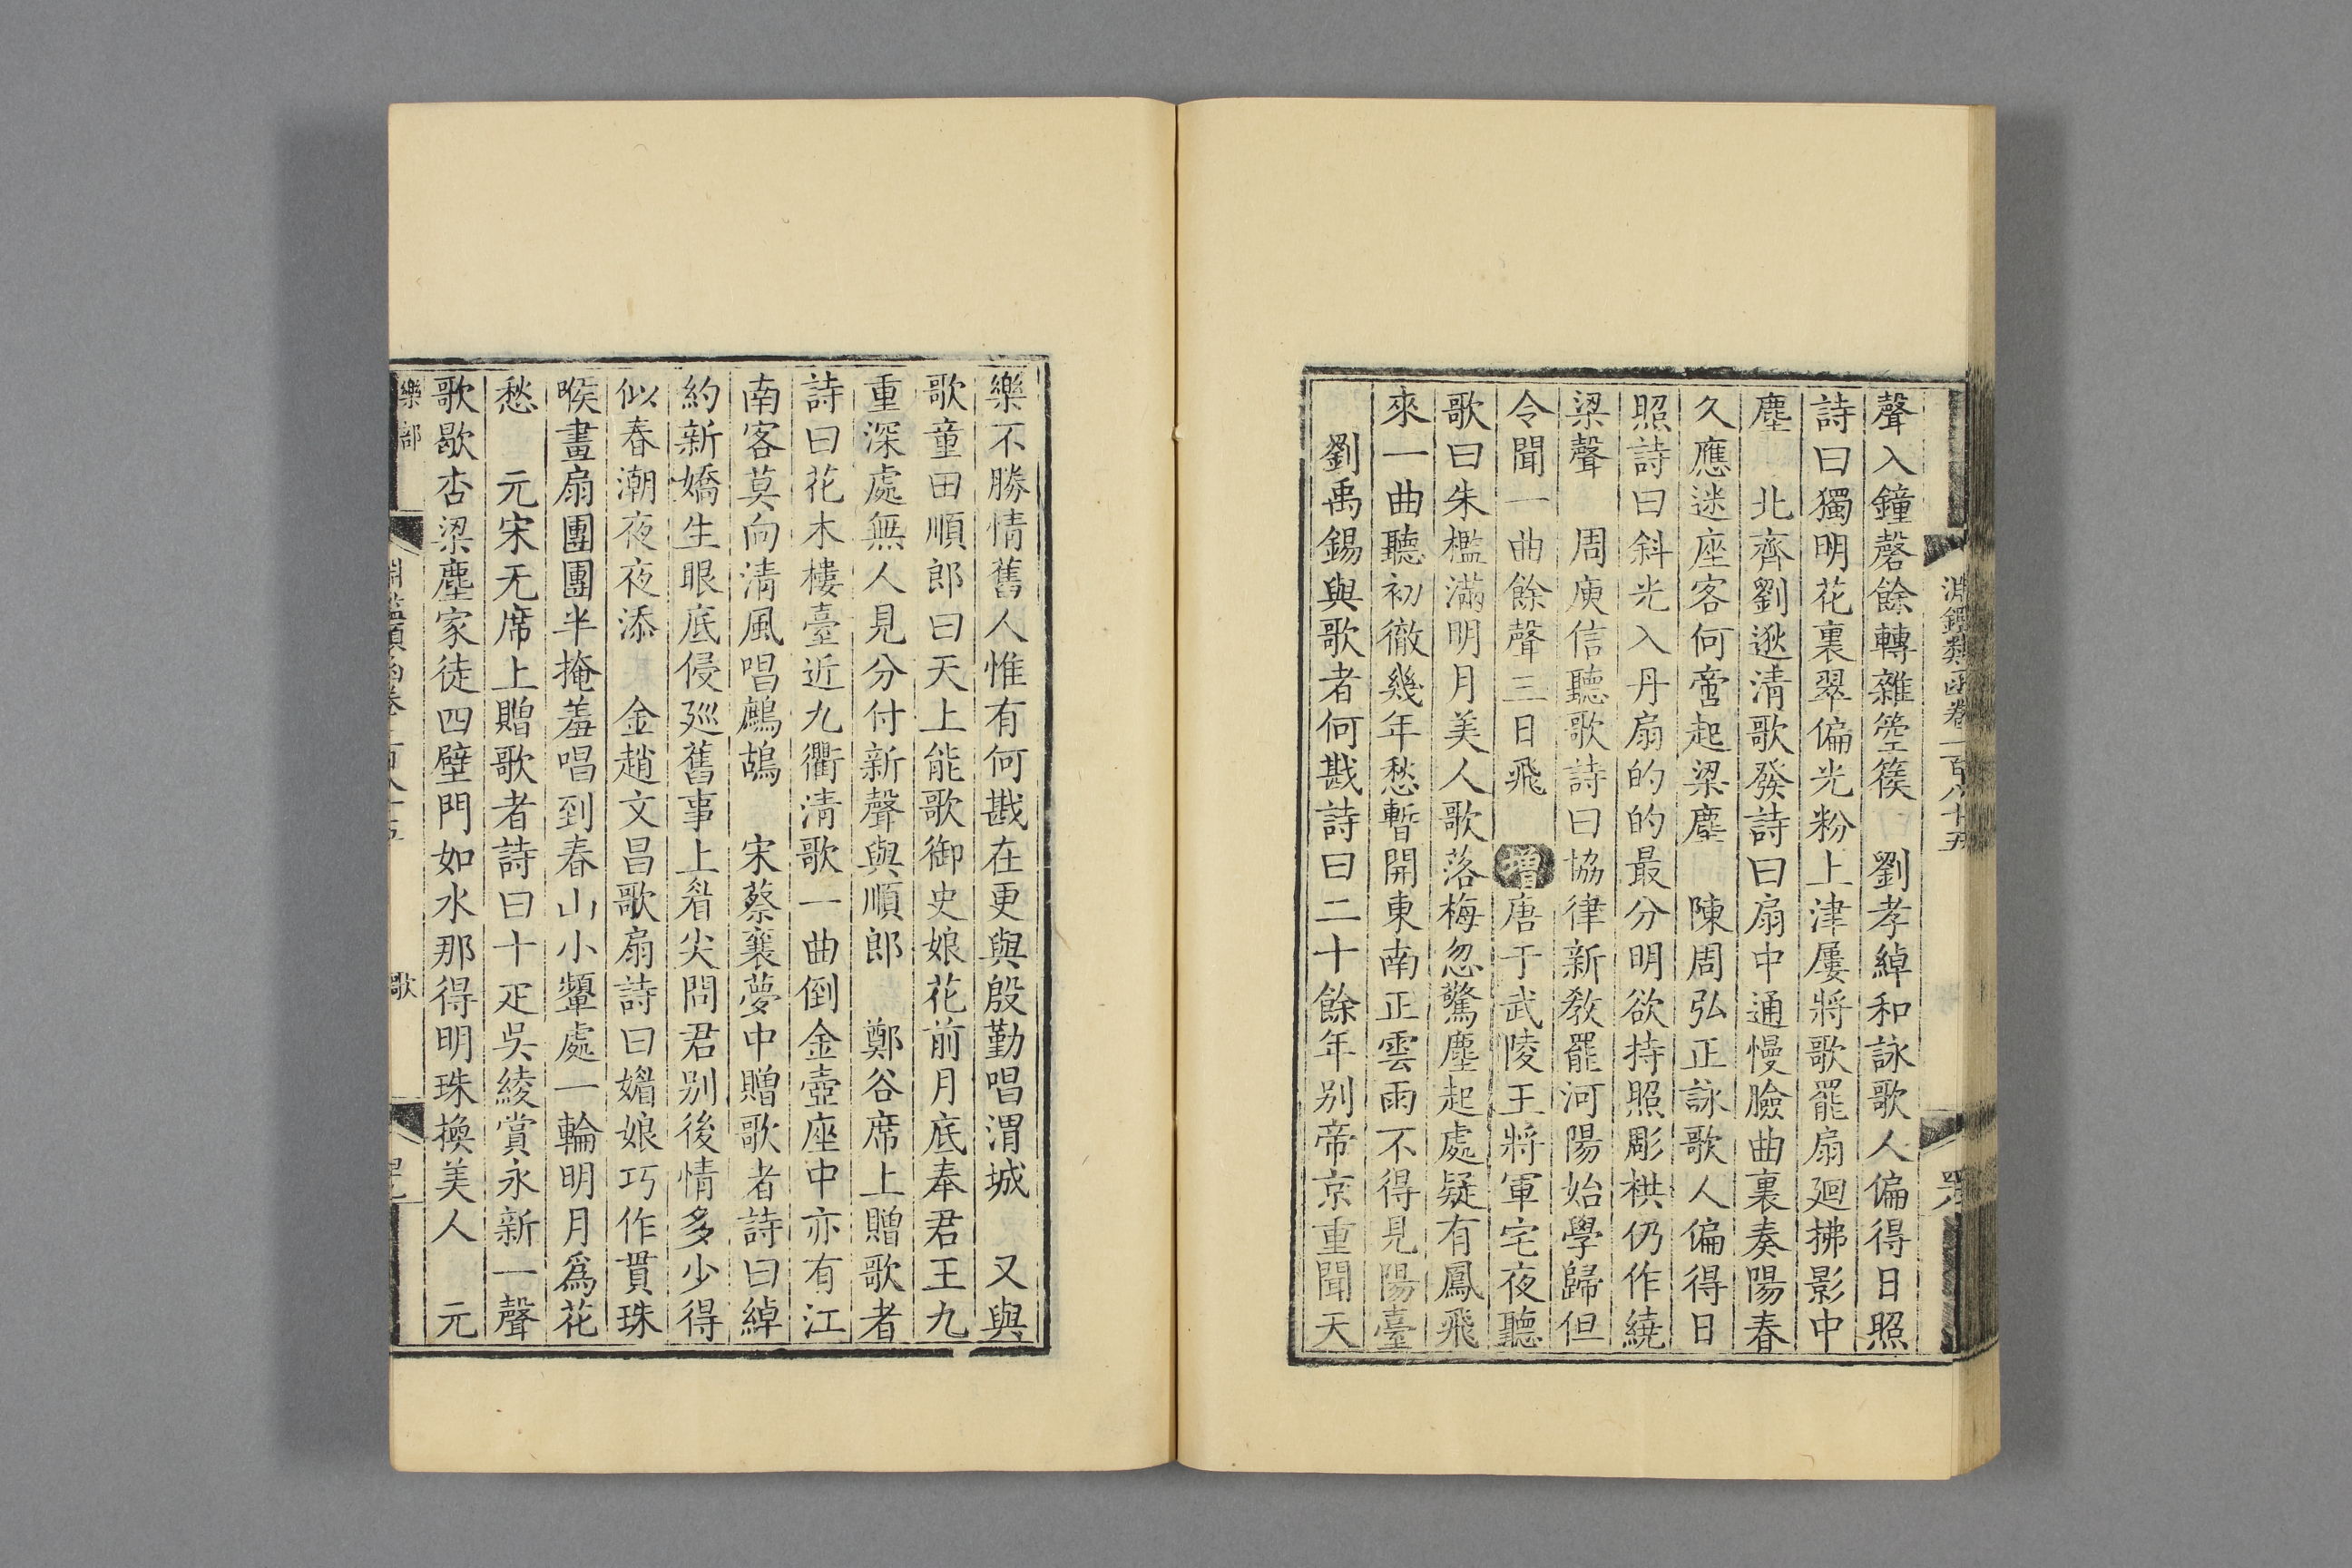 淵鑑類函卷一百八十五
聲入鐘磬餘轉雜箜篌　劉孝綽和詠歌人偏得日照
詩曰獨明花裏翠偏光粉上津屢將歌罷扇廻拂影中
塵　北齊劉逖清歌發詩曰扇中通慢臉曲裏奏陽春
久應迷座客何啻起梁塵　陳周弘正詠歌人偏得日
照詩曰斜光入丹扇的的最分明欲持照彫栱仍作繞
梁聲　周庾信聽歌詩曰協律新教罷河陽始學歸但
令聞一曲餘聲三日飛　增唐于武陵王將軍宅夜聽
歌曰朱檻滿明月美人歌落梅忽驚塵起處疑有鳳飛
來一曲聽初徹幾年愁暫開東南正雲雨不得見陽臺
劉禹錫與歌者何戡詩曰二十餘年別帝京重聞天
樂不勝情舊人惟有何戡在更與殷勤唱渭城　又與
歌童田順郎曰天上能歌御史娘花前月底奉君王九
重深處無人見分付新聲與順郎　鄭谷席上贈歌者
詩曰花木樓臺近九衢清歌一曲倒金壺座中亦有江
南客莫向清風唱鷓鴣　宋蔡襄夢中贈歌者詩曰綽
約新嬌生眼底侵廵舊事上眉尖問君別後情多少得
似春潮夜夜添　金趙文昌歌扇詩曰媚娘巧作貫珠
喉畫扇團團半掩羞唱到春山小顰處一輪明月爲花
愁　元宋无席上贈歌者詩曰十疋吳綾賞永新一聲
歌歇杏梁塵家徒四壁門如水那得明珠換美人　元
樂部　歌